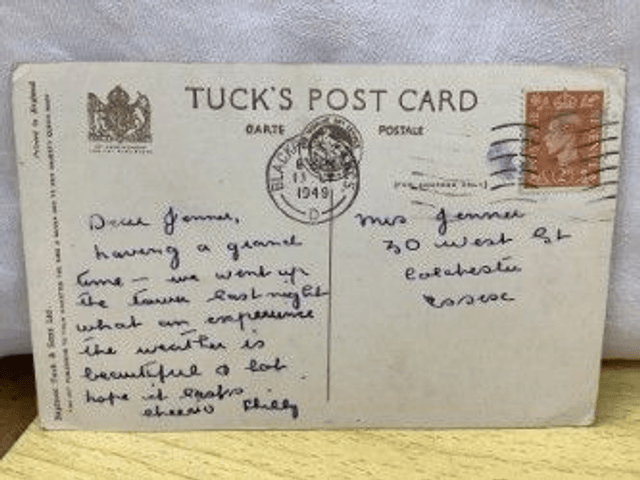 TUCK'S POST CARD
CARTE POSTALE
BLACKPOOL
1949
D
Printed in England
Raphael Tuck & Sons Ltd.
Dear Jennie,
having a grand
time – we went up
the tower last night
what an experience
the weather is
beautiful & hot
hope it lasts
cheerio Philly
Mrs Jennie
30 West St
Colchester
Essex